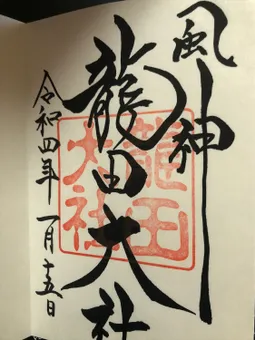 風神
龍田大社
令和四年一月十五日
龍田
大社